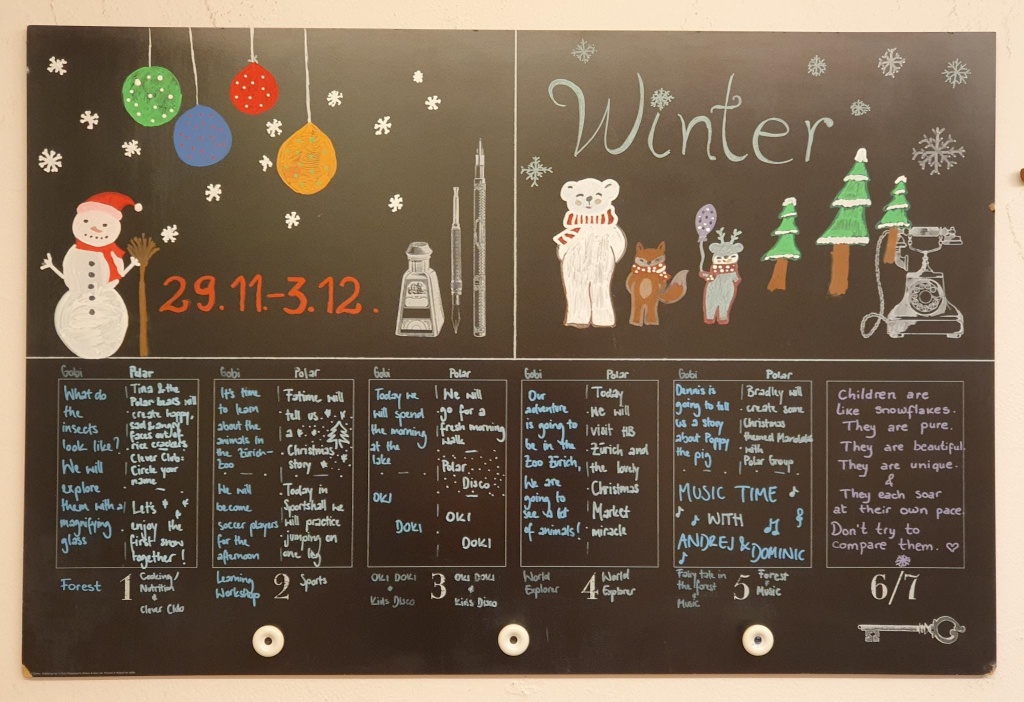 Winter
29.11.-3.12.
Gobi
What do
the
insects
look like?
We will
explore
them with a
magnifying
glass
Polar
Tina & the
Polar bears will
create happy,
sad & angry
Faces out of
rice crackers
Clever Club:
Circle your
name
Let's
enjoy the
first snow
together!
Forest
1
Cooking/
Nutrition
&
Clever Club
Gobi
It's time
to learn
about the
animals in
the Zürich-
Zoo
We will
become
soccer players
for the
afternoon
Polar
Fatime will
tell us
a
Christmas
story
Today in
Sportshall we
will practice
jumping on
one leg
Learning
Workshop
2
Sports
Gobi
Today we
will spend
the morning
at the
lake
OKI
DOKI
Polar
We will
go for a
fresh morning
walk
Polar
Disco
OKI
DOKI
OKI DOKI
&
Kids Disco
3
OKI DOKI
&
Kids Disco
Gobi
Our
adventure
is going to
be in the
Zoo Zürich.
We are
going to
see a lot
of animals!
Polar
Today
We will
visit HB
Zürich and
the lovely
Christmas
Market
miracle
World
Explorer
4
World
Explorer
Gobi
Dennis is
going to tell
us a story
about Poppy
the pig
Polar
Bradley will
create some
Christmas
themed Mandala
with
Polar Group
MUSIC TIME
WITH
ANDREJ & DOMINIC
Fairy tale in
the forest
&
Music
5
Forest
&
Music
Children are
like snowflakes.
They are pure.
They are beautiful.
They are unique.
&
They each soar
at their own pace.
Don't try to
compare them. ♡
6/7